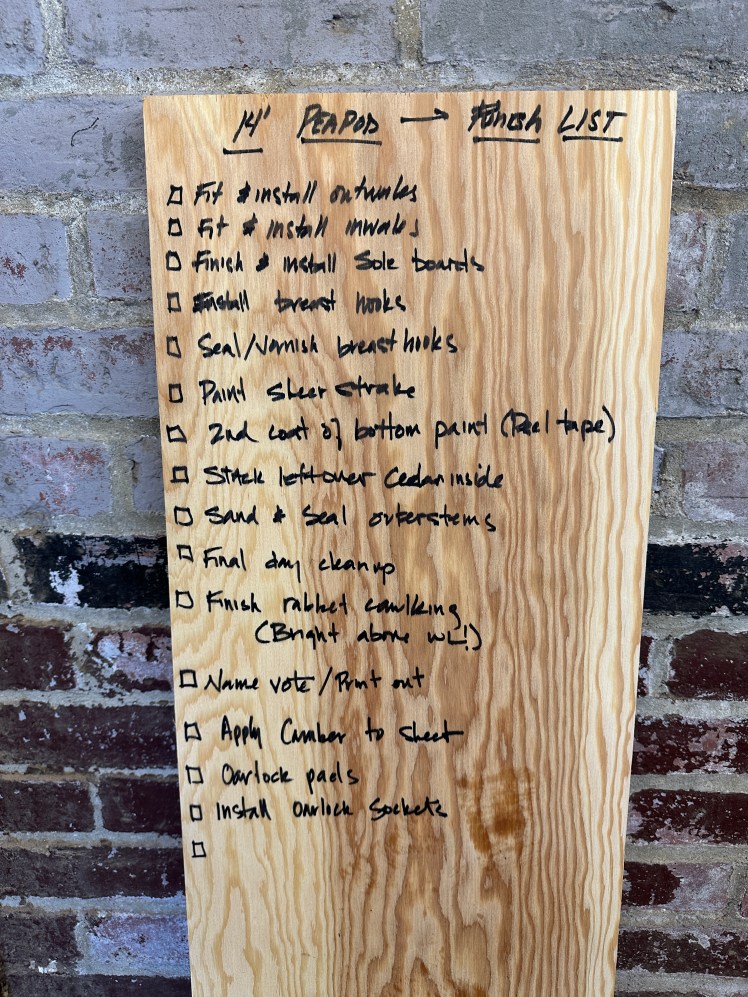 14' PEAPOD → FINISH LIST
□ Fit & install outwales
□ Fit & install inwales
□ Finish & install Sole boards
□ Install breast hooks
□ Seal/Varnish breasthooks
□ Paint sheer strake
□ 2nd coat of bottom paint (Peel tape)
□ Stack leftover Cedar inside
□ Sand & Seal outerstems
□ Final day cleanup
□ Finish rabbet caulking
(Bright above WL!)
□ Name vote/Print out
□ Apply Camber to sheet
□ Oarlock pads
□ Install Oarlock Sockets
□